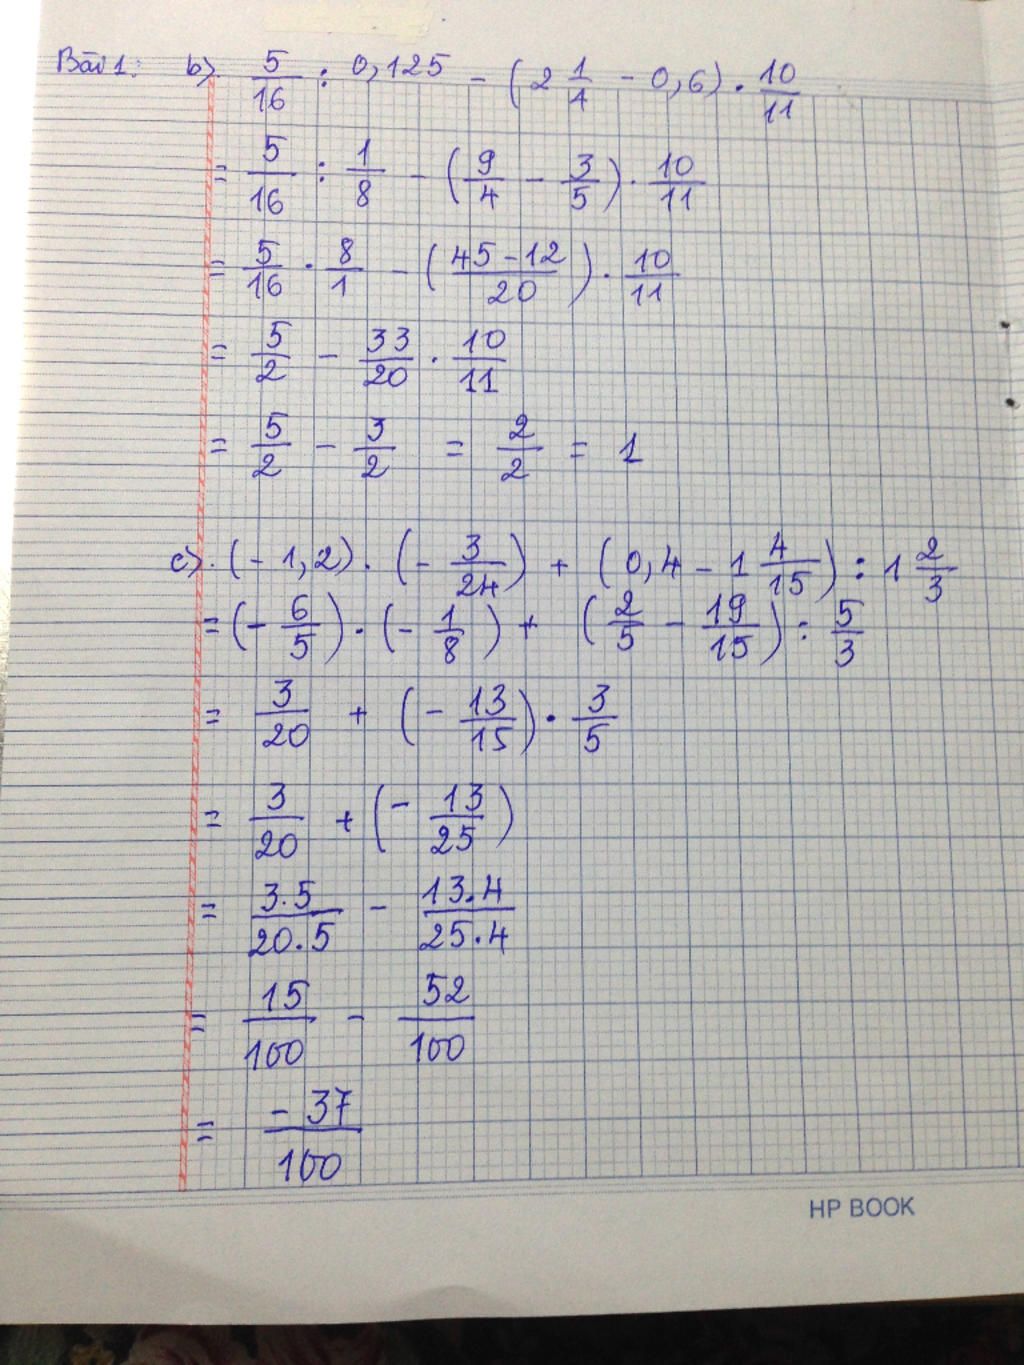 Bài 1: b) 5/16 : 0,125 - (2 1/4 - 0,6) . 10/11
= 5/16 : 1/8 - (9/4 - 3/5) . 10/11
= 5/16 . 8/1 - (45-12/20) . 10/11
= 5/2 - 33/20 . 10/11
= 5/2 - 3/2 = 2/2 = 1
c) . (-1,2) . (- 3/24) + (0,4 - 1 4/15) : 1 2/3
= (- 6/5) . (- 1/8) + (2/5 - 19/15) : 5/3
= 3/20 + (- 13/15) . 3/5
= 3/20 + (- 13/25)
= 3.5/20.5 - 13.4/25.4
= 15/100 - 52/100
= -37/100
HP BOOK